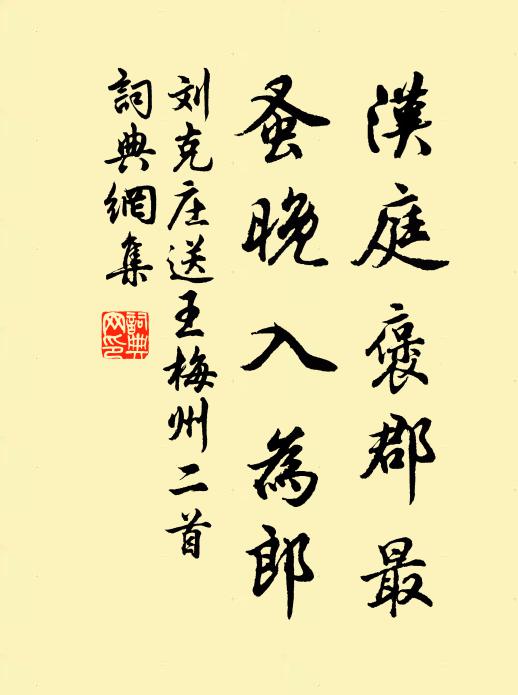 漢庭褒郡最
蚤晚入為郎
刘克庄送王梅州二首
詞典網集
詞典網印